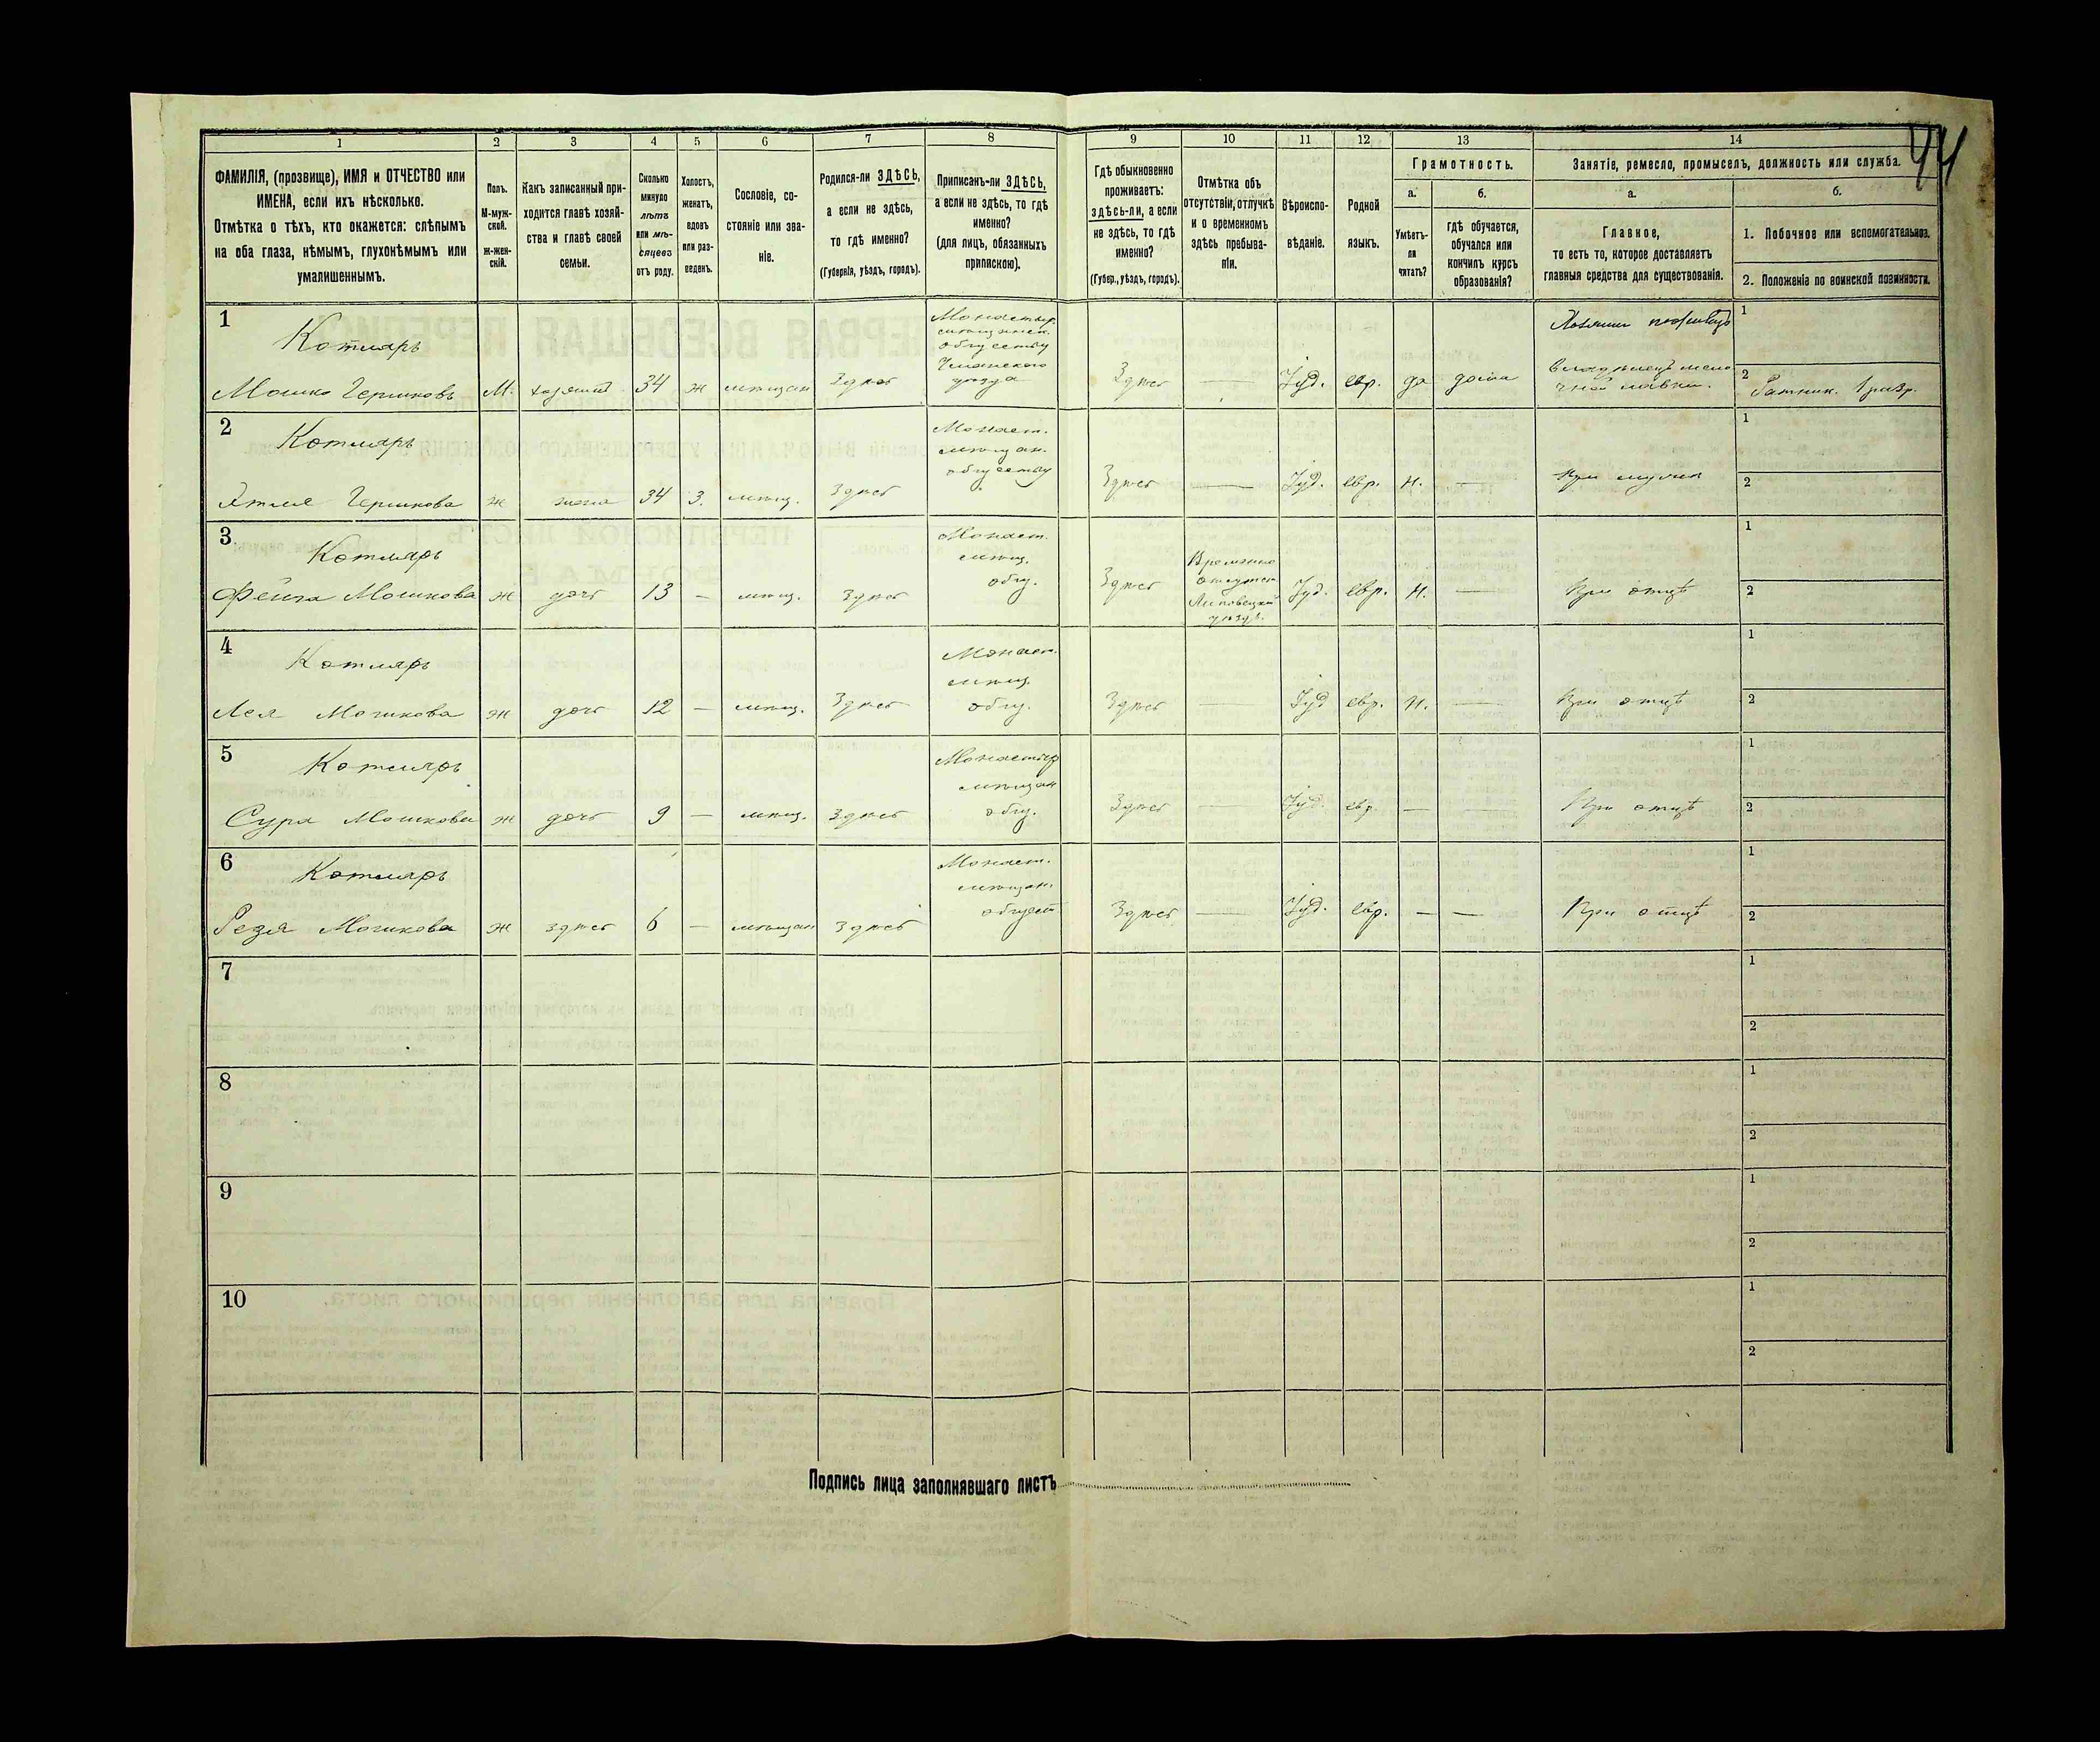 1 2 3 4 5 6 7 8 9 10 11 12 13 14
44
ФАМИЛІЯ, (прозвище), ИМЯ и ОТЧЕСТВО или
ИМЕНА, если ихъ нѣсколько.
Отмѣтка о тѣхъ, кто окажется: слѣпымъ
на оба глаза, нѣмымъ, глухонѣмымъ или
умалишеннымъ.
Полъ.
М-муж-
ской.
Ж-жен-
скій.
Какъ записанный при-
ходится главѣ хозяй-
ства и главѣ своей
семьи.
Сколько
минуло
лѣтъ
или мѣ-
сяцевъ
отъ роду.
Холостъ,
женатъ,
вдовъ
или раз-
веденъ.
Сословіе, со-
стояніе или зва-
ніе.
Родился-ли ЗДѢСЬ,
а если не здѣсь,
то гдѣ именно?
(Губернія, уѣздъ, городъ).
Приписанъ-ли ЗДѢСЬ,
а если не здѣсь, то гдѣ
именно?
(для лицъ, обязанныхъ
припискою).
Гдѣ обыкновенно
проживаетъ:
здѣсь-ли, а если
не здѣсь, то гдѣ
именно?
(Губер., уѣздъ, городъ).
Отмѣтка объ
отсутствіи, отлучкѣ
и о временномъ
здѣсь пребыва-
ніи.
Вѣроиспо-
вѣданіе.
Родной
языкъ.
Грамотность.
а.
Умѣетъ-
ли
читать?
б.
гдѣ обучается,
обучался или
кончилъ курсъ
образованія?
Занятіе, ремесло, промыселъ, должность или служба.
а.
Главное,
то есть то, которое доставляетъ
главныя средства для существованія.
б.
1. Побочное или вспомогательное.
2. Положеніе по воинской повинности.
1
Котляръ
Мошко Гершковъ М. хозяинъ 34 ж мѣщан здѣсь
Монастыр.
мѣщанск.
обществу
Уманскаго
уѣзда
Здѣсь — Іуд. евр. да дома
владѣлецъ мело
чной лавки.
1
2 Ратник. 1 разр.
2
Котляръ
Гершкова ж жена 34 З. мѣщ. Здѣсь
Монаст.
мѣщан.
обществу
Здѣсь — Іуд. евр. Н. — При мужѣ
1
2
3
Котляръ
Фейга Мошкова ж дочь 13 — мѣщ. Здѣсь
Монаст.
мѣщ.
общ.
Здѣсь
Временно
отсутст.
Липовецкій
уѣздъ.
Іуд. евр. Н. — При отцѣ
1
2
4
Котляръ
Лея Мошкова ж дочь 12 — мѣщ. Здѣсь
Монаст.
мѣщ.
общ.
Здѣсь — Іуд евр. Н. — При отцѣ
1
2
5
Котляръ
Сура Мошкова ж дочь 9 — мѣщ. Здѣсь
Монастыр
мѣщан
общ.
Здѣсь — Іуд. евр. — При отцѣ
1
2
6
Котляръ
Рейзя Мошкова ж здѣсь 6 — мѣщан Здѣсь
Монаст.
мѣщан.
общест
Здѣсь — Іуд. евр. — — При отцѣ
1
2
7
1
2
8
1
2
9
1
2
10
1
2
Подпись лица заполнявшаго листъ